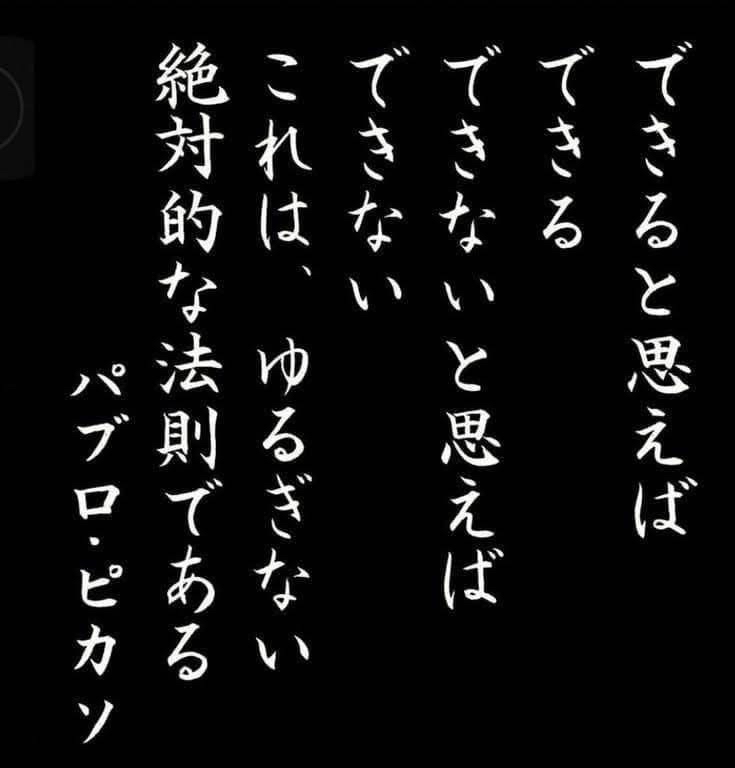 できると思えば
できる
できないと思えば
できない
これは、ゆるぎない
絶対的な法則である
パブロ・ピカソ